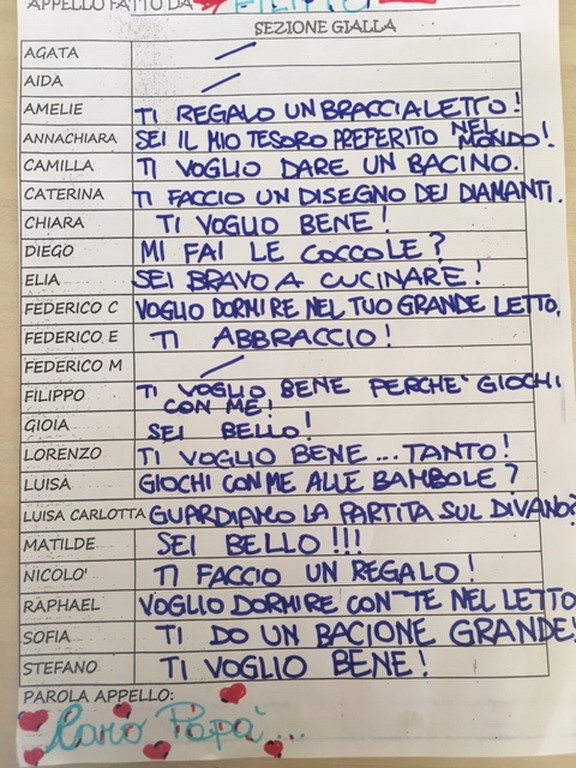 APPELLO FATTO DA FILIPPO
SEZIONE GIALLA
AGATA /
AIDA /
AMELIE TI REGALO UN BRACCIALETTO!
ANNACHIARA SEI IL MIO TESORO PREFERITO NEL MONDO!
CAMILLA TI VOGLIO DARE UN BACINO.
CATERINA TI FACCIO UN DISEGNO DEI DIAMANTI.
CHIARA TI VOGLIO BENE!
DIEGO MI FAI LE COCCOLE?
ELIA SEI BRAVO A CUCINARE!
FEDERICO C VOGLIO DORMIRE NEL TUO GRANDE LETTO.
FEDERICO E TI ABBRACCIO!
FEDERICO M /
FILIPPO TI VOGLIO BENE PERCHE' GIOCHI
CON ME!
GIOIA SEI BELLO!
LORENZO TI VOGLIO BENE...TANTO!
LUISA GIOCHI CON ME ALLE BAMBOLE?
LUISA CARLOTTA GUARDIAMO LA PARTITA SUL DIVANO?
MATILDE SEI BELLO!!!
NICOLO' TI FACCIO UN REGALO!
RAPHAEL VOGLIO DORMIRE CON TE NEL LETTO
SOFIA TI DO UN BACIONE GRANDE!
STEFANO TI VOGLIO BENE!
PAROLA APPELLO:
Caro Papà...